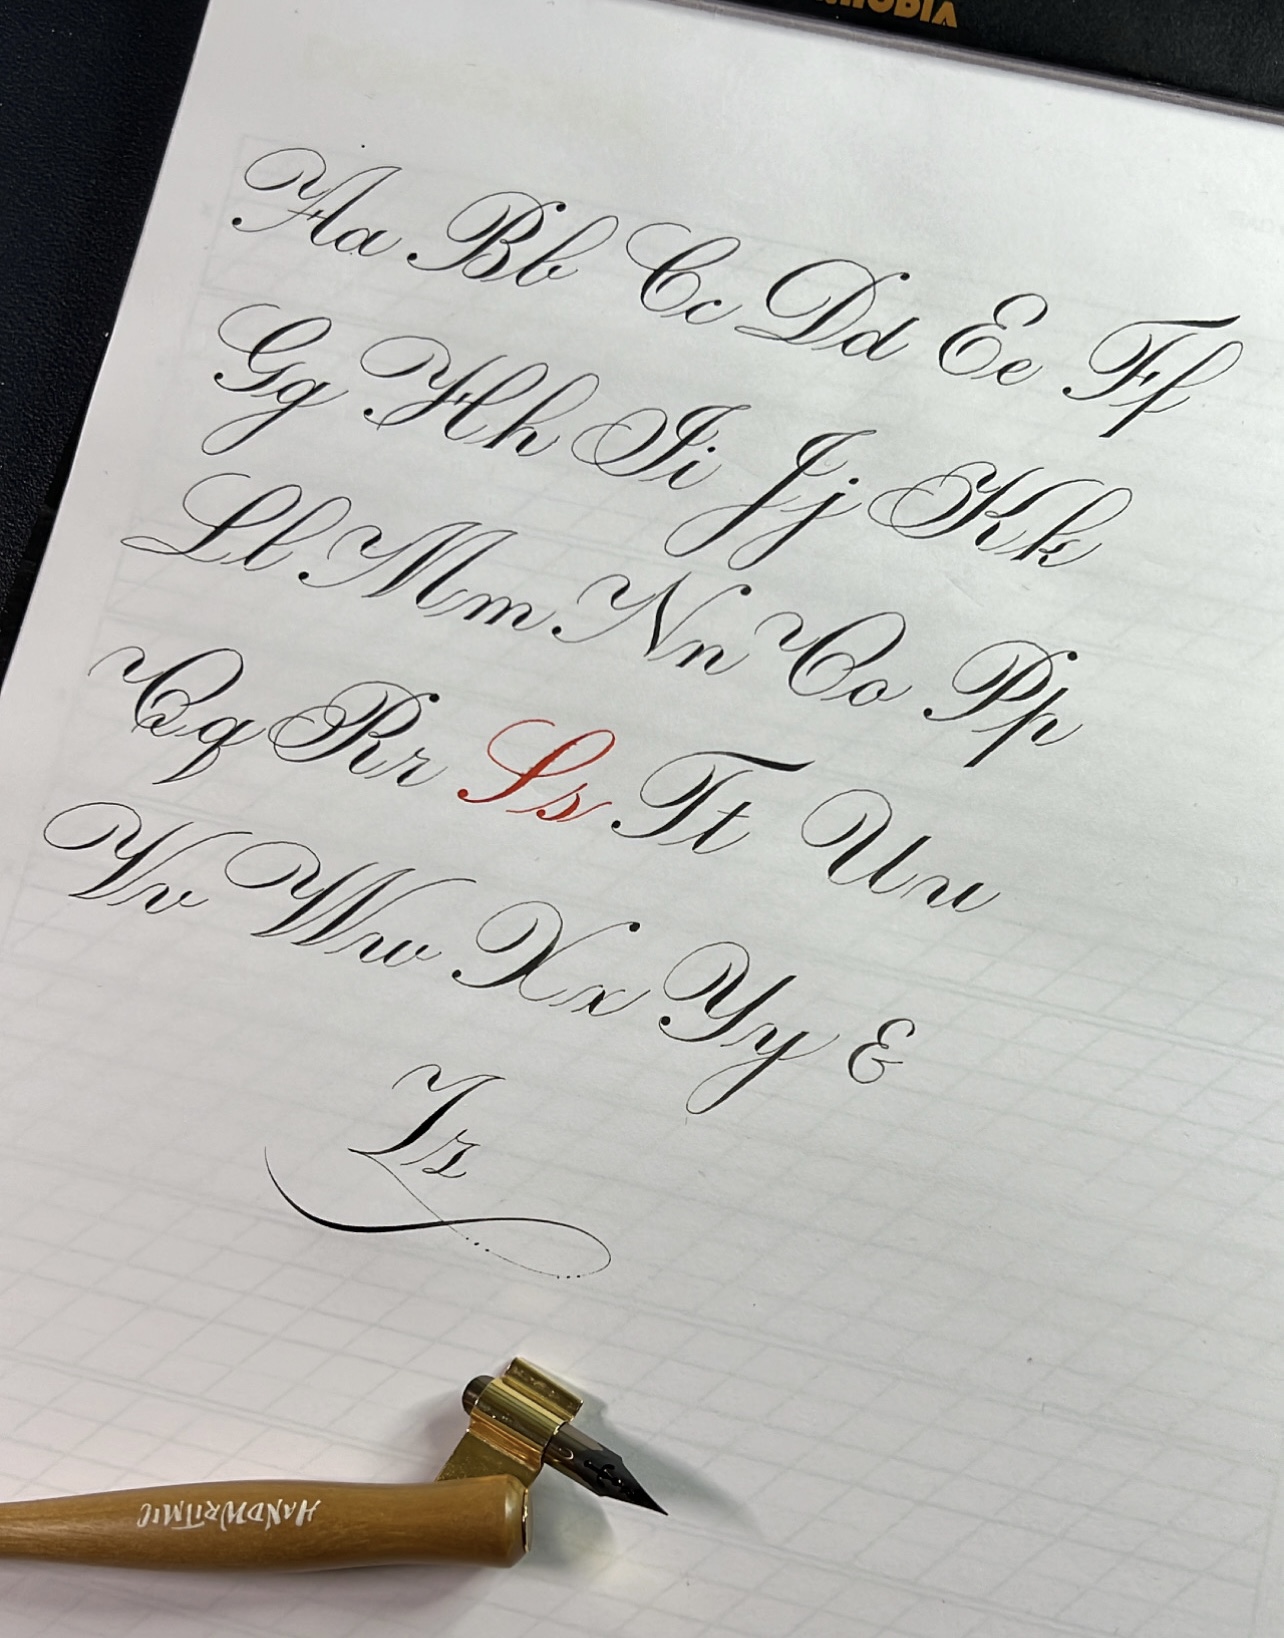 Aa Bb Cc Dd Ee Ff
Gg Hh Ii Jj Kk
Ll Mm Nn Oo Pp
Qq Rr Ss Tt Uu
Vv Ww Xx Yy &
Zz
HANDWRITMIC